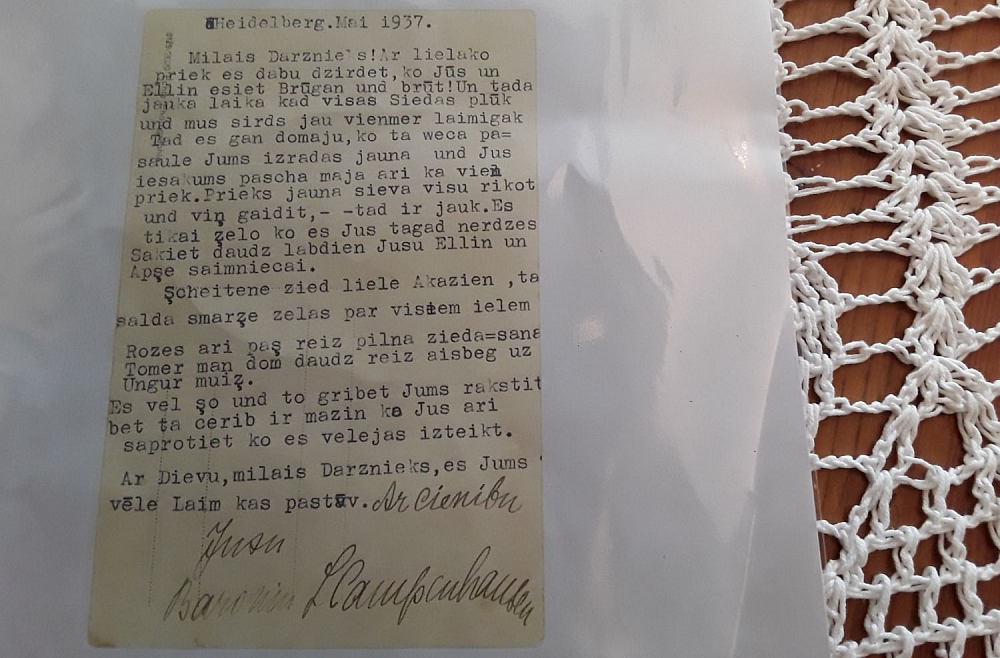 Heidelberg.Mai 1937.
Milais Darznieks!Ar lielako
priek es dabu dzirdet,ko Jūs un
Ellin esiet Brūgan und brūt!Un tada
jauka laika kad visas Siedas plūk
und mus sirds jau vienmer laimigak
Tad es gan domaju,ko ta weca pa=
saule Jums izradas jauna und Jus
iesakums pascha maja ari ka vien
priek.Prieks jauna sieva visu rikot
und viņ gaidit,- -tad ir jauk.Es
tikai z̧elo ko es Jus tagad nerdzes
Sakiet daudz labdien Jusu Ellin un
Apşe saimniecai.
Şcheitene zied liele Akazien ,ta
salda smarz̧e zelas par visiem ielem
Rozes ari paş reiz pilna zieda=sana
Tomer man dom daudz reiz aisbeg uz
Ungur muiz̧.
Es vel şo und to gribet Jums rakstit
bet ta cerib ir mazin ka Jus ari
saprotiet ko es velejas izteikt.
Ar Dievu,milais Darznieks,es Jums
vēle Laim kas pastāv. Ar cienibu
Jusu
Baronin L Campenhausen